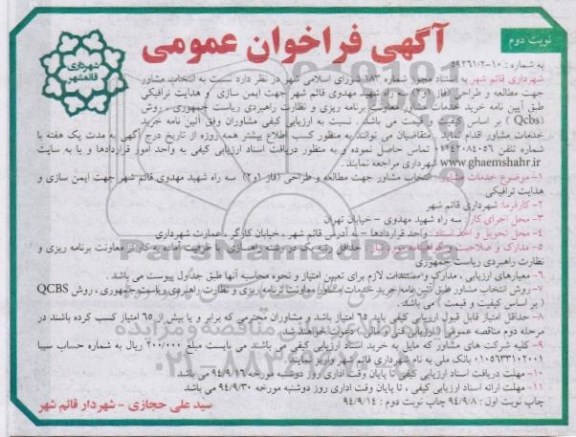 نوبت دوم
آگهی فراخوان عمومی
شهرداری
قائمشهر
به شماره : ۱۰-
شهرداری قائم شهر به استناد مجوز شماره ۱۸۳ شورای اسلامی شهر در نظر دارد نسبت به انتخاب مشاور
جهت مطالعه و طراحی (فاز ۱و۲) سه راه شهید مهدوی قائم شهر جهت ایمن سازی و هدایت ترافیکی
طبق آیین نامه خرید خدمات مشاور معاونت برنامه ریزی و نظارت راهبردی ریاست جمهوری - روش
(Qcbs) بر اساس کیفیت و قیمت می باشد . نسبت به ارزیابی کیفی مشاوران وفق آئین نامه خرید
خدمات مشاور اقدام نماید . متقاضیان می توانند به منظور کسب اطلاع بیشتر همه روزه از تاریخ درج آگهی به مدت یک هفته با
شماره تلفن تماس حاصل نموده و به منظور دریافت اسناد ارزیابی کیفی به واحد امور قراردادها و یا به سایت
www.ghaemshahr.ir شهرداری مراجعه نمایند .
۱- موضوع خدمات مشاور : انتخاب مشاور جهت مطالعه و طراحی (فاز ۱و۲) سه راه شهید مهدوی قائم شهر جهت ایمن سازی و
هدایت ترافیکی
۲- کارفرما: شهرداری قائم شهر
۳- محل اجرای کار : سه راه شهید مهدوی - خیابان تهران
۴- محل تحویل و اخذ اسناد : واحد قراردادها - به آدرس قائم شهر ، خیابان کارگر ، عمارت شهرداری
۵- مدارک و صلاحیت حداقل رتبه یک در رشته راهسازی با ظرفیت آماده به کار از معاونت برنامه ریزی و
نظارت راهبردی ریاست جمهوری
۶- معیارهای ارزیابی ، مدارک و مستندات لازم برای تعیین امتیاز و نحوه محاسبه آنها طبق جداول پیوست می باشد .
۷- روش انتخاب مشاور طبق آئین نامه خرید خدمات مشاور معاونت برنامه ریزی و نظارت راهبردی ریاست جمهوری ، روش QCBS
( بر اساس کیفیت و قیمت ) می باشد .
۸- حداقل امتیاز قابل قبول ارزیابی کیفی باید ۶۵ امتیاز باشد و مشاوران محترمی که برابر و یا بیش از ۶۵ امتیاز کسب کرده باشند در
مرحله دوم مناقصه عمومی (ارزیابی فنی و مالی) دعوت خواهند شد .
۹- کلیه شرکت های مشاور که مایل به خرید اسناد ارزیابی کیفی می باشند می بایست مبلغ ۲۰۰/۰۰۰ ریال به شماره حساب سیبا
۰۱۰۵۶۳۳۱۰۲۰۰۱ بانک ملی به نام شهرداری قائم شهر واریز نمایند .
۱۰- مهلت دریافت اسناد ارزیابی کیفی تا پایان وقت اداری روز دوشنبه مورخه ۹۴/۹/۱۶ می باشد .
۱۱- مهلت ارائه اسناد ارزیابی کیفی ، تا پایان وقت اداری روز دوشنبه مورخه ۹۴/۹/۳۰ می باشد .
چاپ نوبت اول : ۹۴/۹/۸ چاپ نوبت دوم : ۹۴/۹/۱۴
سید علی حجازی - شهردار قائم شهر
ParsNamadData
۰۲۱-۸۸۳۴۹۶۷۰-۵